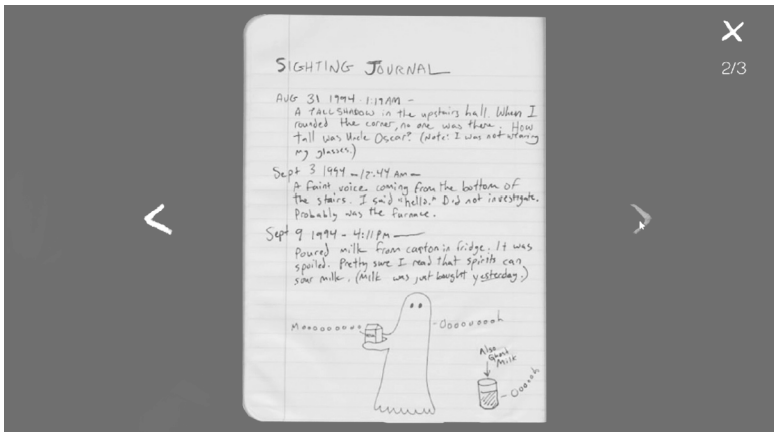 2/3
SIGHTING JOURNAL
AUG 31 1994 - 1:19 AM -
A TALL SHADOW in the upstairs hall. When I
rounded the corner, no one was there. How
tall was Uncle Oscar? (Note: I was not wearing
my glasses.)
Sept 3 1994 - 12:44 AM -
A faint voice coming from the bottom of
the stairs. I said "hello." Did not investigate.
Probably was the furnace.
Sept 9 1994 - 4:11 PM -
Poured milk from carton in fridge. It was
spoiled. Pretty sure I read that spirits can
sour milk. (Milk was just bought yesterday.)
Mooooooooo
-Ooooooooh
Also
Ghost
Milk
-Oooooh